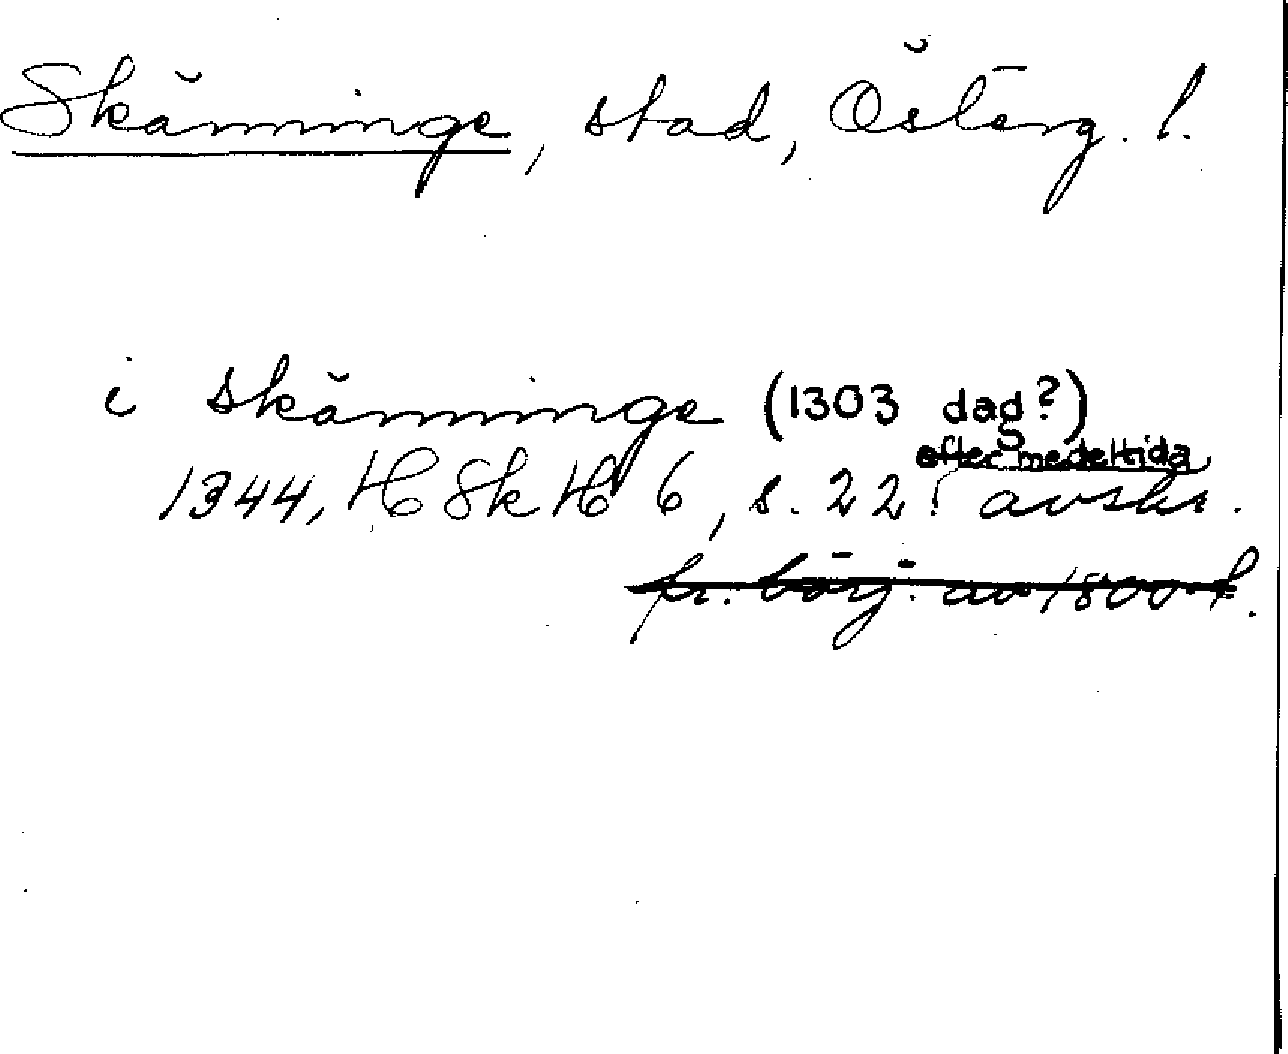 Skänninge, stad, Österg. l.
i skänninge (1303 dag?)
efter medeltida
1344, HSkH 6, s. 22. avskr.
fr. börj. av 1800-t.